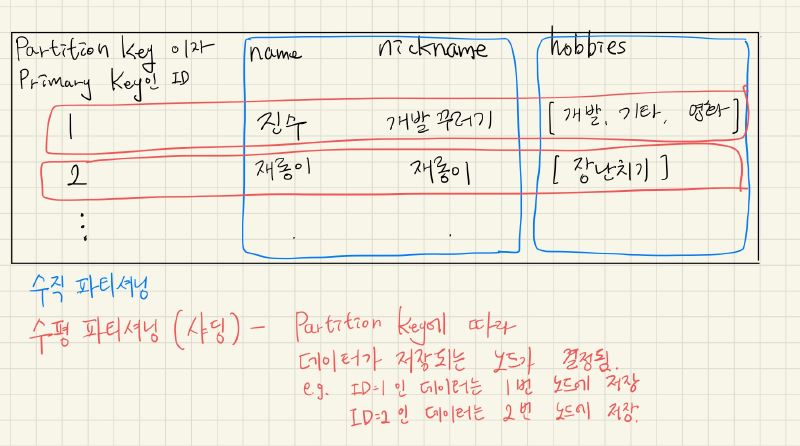 Partition Key 이자
Primary Key인 ID
name
nickname
hobbies
1 진수 개발 꾸러기 [ 개발, 기타, 영화 ]
2 재롱이 재롱이 [ 장난치기 ]
수직 파티셔닝
수평 파티셔닝 (샤딩) - Partition Key에 따라
데이터가 저장되는 노드가 결정됨.
e.g. ID=1 인 데이터는 1번 노드에 저장
ID=2 인 데이터는 2번 노드에 저장.